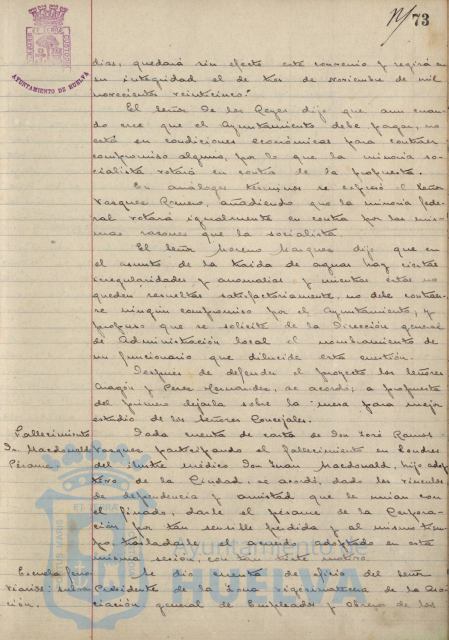 73
AYUNTAMIENTO DE HUELVA
dias, quedará sin efecto este convenio y regirá en
su integridad el de tres de Noviembre de mil
novecientos veinticinco."
El Señor De los Reyes dijo que aun cuan-
do cree que el Ayuntamiento debe pagar, no
está en condiciones económicas para contraer
compromiso alguno, por lo que la minoria so-
cialista votará en contra de la propuesta.
En análogos términos se expresó el Señor
Vasquez Romero, añadiendo que la minoria fede-
ral votará igualmente en contra por las mis-
mas razones que la socialista.
El Señor Moreno Marquez dijo que en
el asunto de la traida de aguas hay ciertas
irregularidades y anomalias y mientras estas no
queden resueltas satisfactoriamente, no debe contraer-
se ningún compromiso por el Ayuntamiento, y
propuso que se solicite de la Dirección general
de Administración local el nombramiento de
un funcionario que dilucide esta cuestión.
Despues de defender el proyecto los Señores
Aragón y Perez Hernandez, se acordó, a propuesta
del primero dejarla sobre la mesa para mejor
estudio de los Señores Concejales.
Fallecimiento Dada cuenta de carta de Don José Ramos
Dr. Macdonald Vasquez participando el fallecimiento en Londres
Pésame. del ilustre médico Don Juan Macdonald, hijo adop-
tivo de la Ciudad, se acordó, dado los vinculos
de dependencia y amistad que le unian con
el finado, darle el pésame de la Corpora-
ción por tan sensible perdida y al mismo tiem-
po, trasladarle el acuerdo adoptado en esta
misma sesión, con tan triste motivo.
Escuela ferro- Se dio cuenta de oficio del Señor
viarios: subven- Presidente de la Zona vigesimotercera de la Aso-
ción. ciación general de Empleados y Obreros de los
Ayuntamiento de
HUELVA